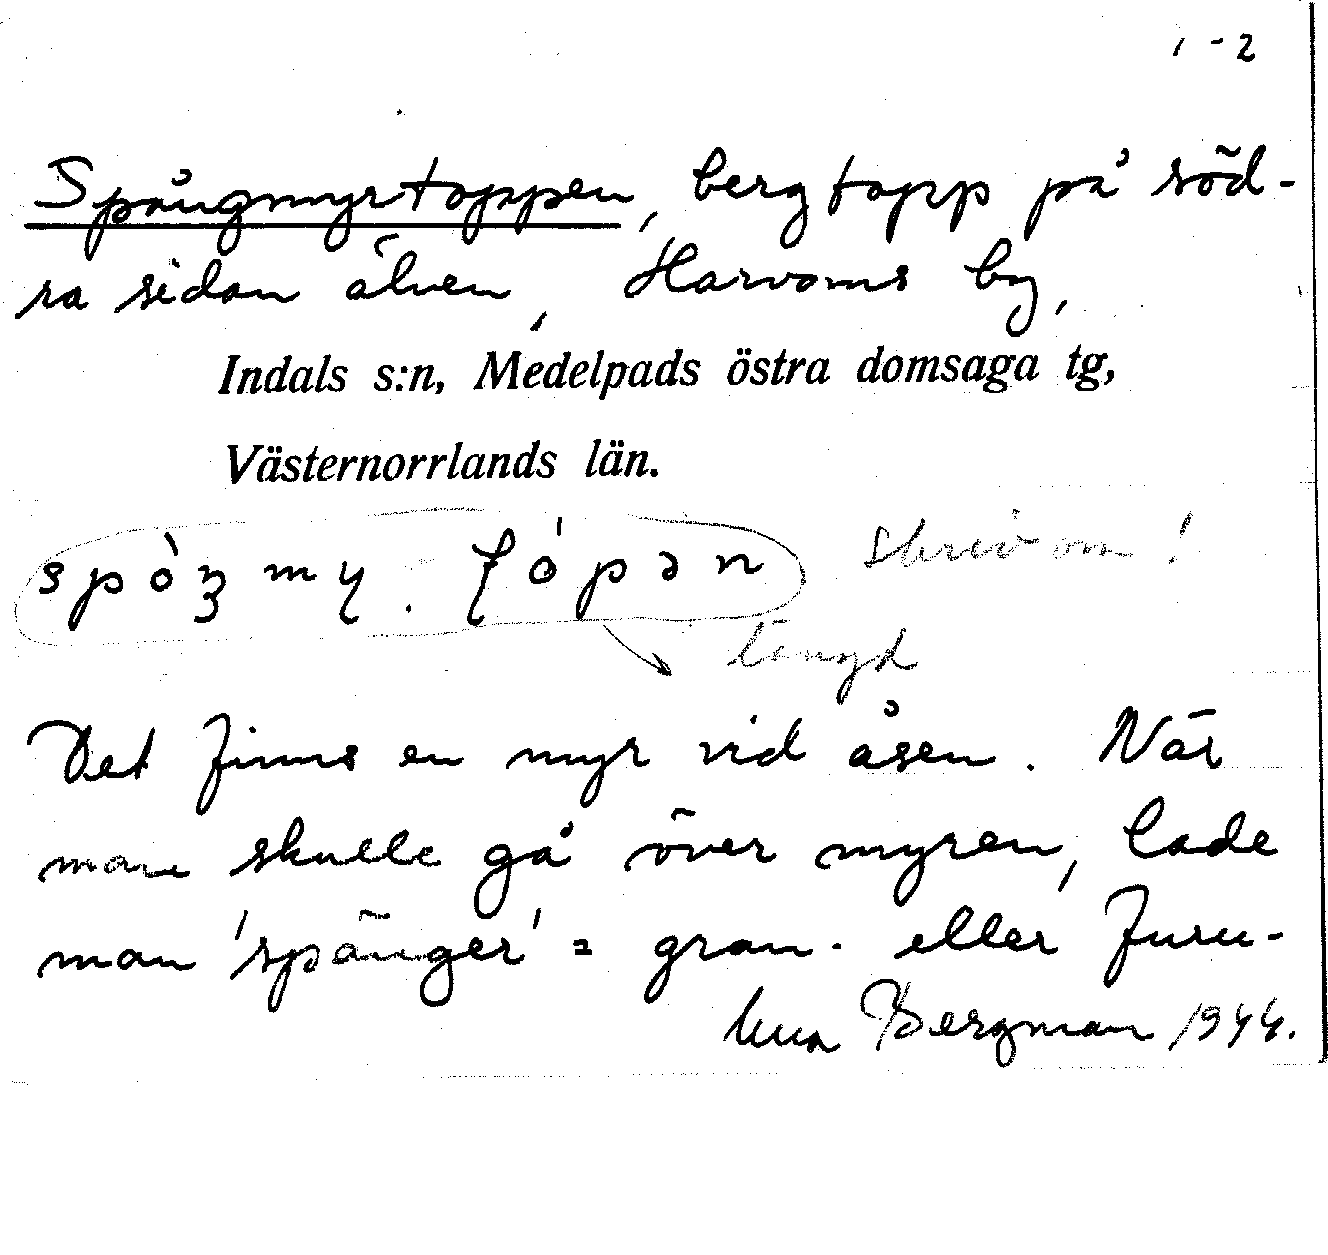 1-2
Spångmyrtoppen, bergtopp på söd-
ra sidan älven, Harvoms by,
Indals s:n, Medelpads östra domsaga tg,
Västernorrlands län.
skriv om!
längd
Det finns en myr vid åsen. När
man skulle gå över myren, lade
man 'spänger' = gran- eller furu-
Bergman 1944.